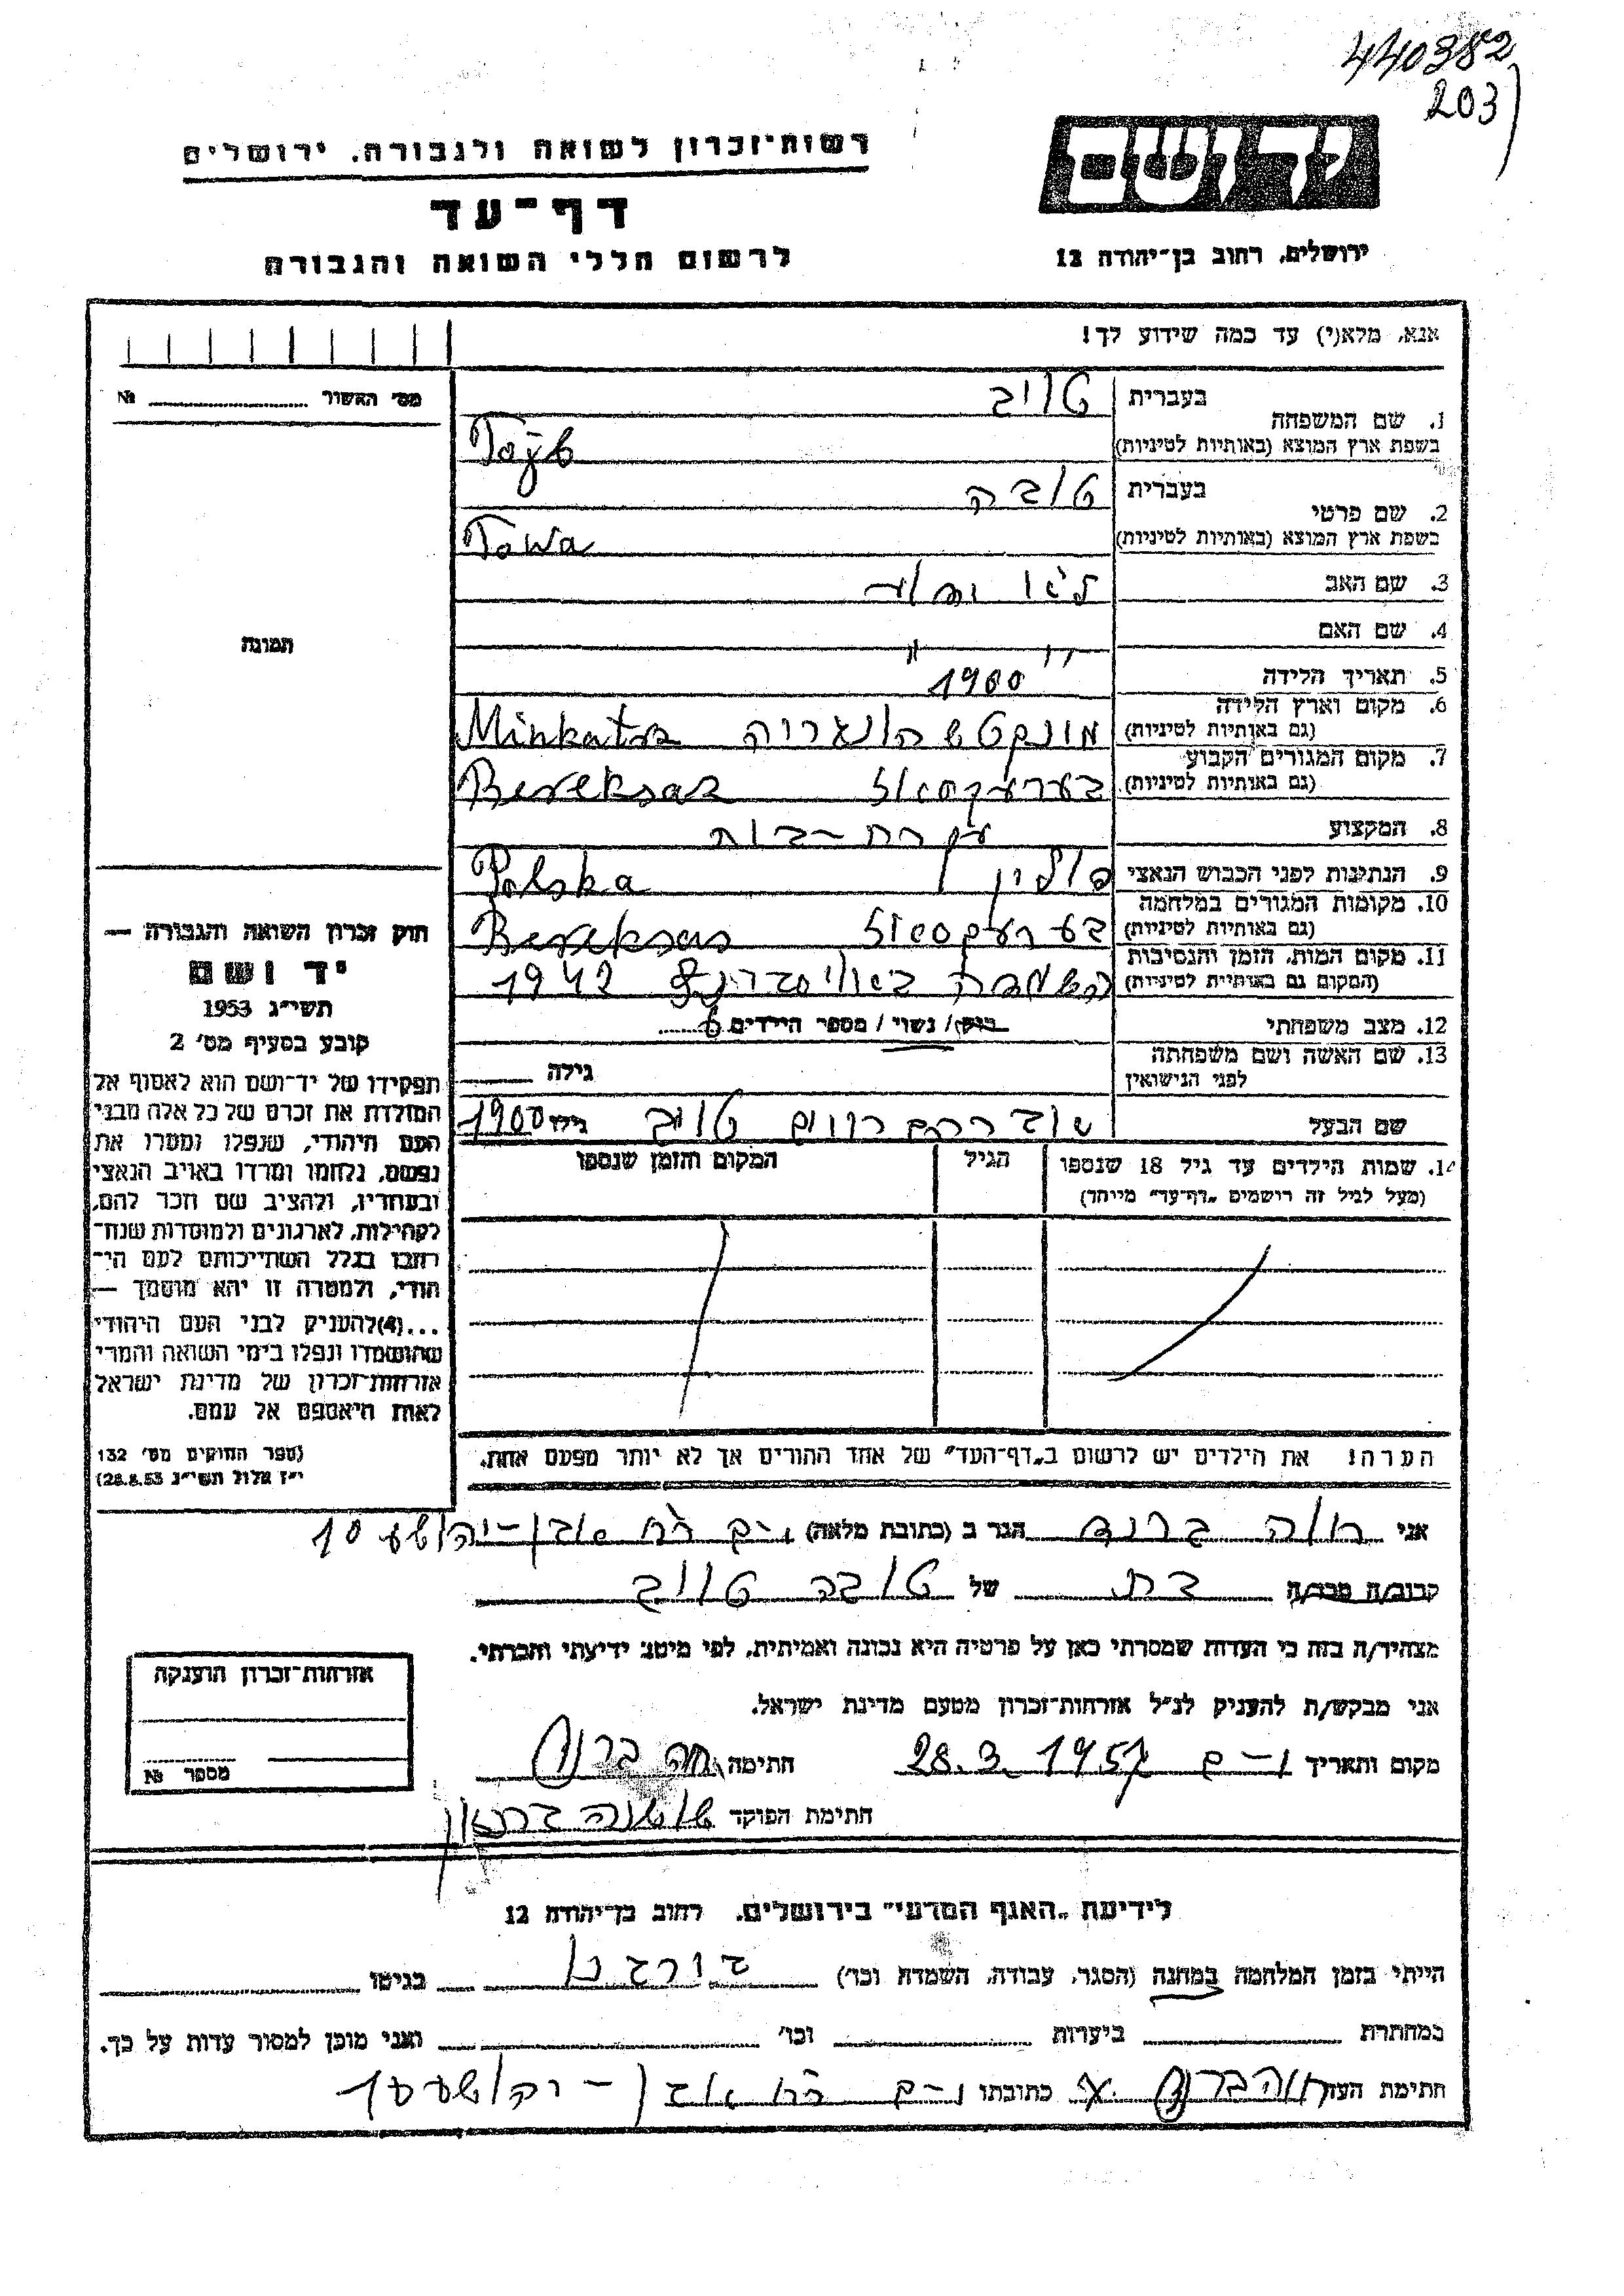 440382
203
יד ושם
רשות־זכרון לשואה ולגבורה, ירושלים
דף־עד
לרשום חללי השואה והגבורה
ירושלים, רחוב בן־יהודה 12
אנא, מלא(י) עד כמה שידוע לך!
מס׳ האשור № 
1. שם המשפחה בעברית טויב
בשפת ארץ המוצא (באותיות לטיניות) Tojb
2. שם פרטי בעברית טובה
בשפת ארץ המוצא (באותיות לטיניות) Towa
3. שם האב לא ידוע
4. שם האם " "
תמונה
5. תאריך הלידה 1900
6. מקום וארץ הלידה
(גם באותיות לטיניות) מונקטש הונגרוה Minkatsz
7. מקום המגורים הקבוע
(גם באותיות לטיניות) בערעקסאז Bereksaz
8. המקצוע עקרת-בית
9. הנתינות לפני הכבוש הנאצי פולין Polska
10. מקומות המגורים במלחמה
(גם באותיות לטיניות) בערעקסאז Bereksas
11. מקום המות, הזמן והנסיבות
(המקום גם באותיות לטיניות) הושמדה באוישבויץ 1942
12. מצב משפחתי רוק/ נשוי/ מספר הילדים 6
13. שם האשה ושם משפחתה
לפני הנישואין גילה
שם הבעל אברהם חיים טויב גילו 1900
14. שמות הילדים עד גיל 18 שנספו
(מעל לגיל זה רושמים „דף־עד״ מיוחד)
הגיל
המקום והזמן שנספו
הערה: את הילדים יש לרשום ב„דף־העד״ של אחד ההורים אך לא יותר מפעם אחת.
חוק זכרון השואה והגבורה —
יד ושם
תשי״ג 1953
קובע בסעיף מס׳ 2
תפקידו של יד־ושם הוא לאסוף אל
המולדת את זכרם של כל אלה מבני
העם היהודי, שנפלו ומסרו את
נפשם, נלחמו ומרדו באויב הנאצי
ובעוזריו, ולהציב שם וזכר להם,
לקהילות, לארגונים ולמוסדות שנח־
רבו בגלל השתייכותם לעם הי־
הודי, ולמטרה זו יהא מוסמך —
...(4)להעניק לבני העם היהודי
שהושמדו ונפלו בימי השואה והמרי
אזרחות־זכרון של מדינת ישראל
לאות היאספם אל עמם.
(ספר החוקים מס׳ 132
י״ז אלול תשי״ג 28.8.53)
אני חוה ברנד הגר ב (כתובת מלאה) י-ם אבן-יהושע 10
קרוב/ה מכר/ה בת של טובה טויב
מצהיר/ה בזה כי העדות שמסרתי כאן על פרטיה היא נכונה ואמיתית, לפי מיטב ידיעתי והכרתי.
אני מבקש/ת להעניק לנ״ל אזרחות־זכרון מטעם מדינת ישראל.
מקום ותאריך י-ם 28.3.1957 חתימה חוה ברנד
חתימת הפוקד
אזרחות־זכרון הוענקה
מספר №
לידיעת „האגף המדעי״ בירושלים, רחוב בן־יהודה 12
הייתי בזמן המלחמה במחנה (הסגר, עבודה, השמדה וכו׳) בגיטו
במחתרת ביערות וכו׳ ואני מוכן למסור עדות על כך.
חתימת העד חוה ברנד כתובתו י-ם אבן-יהושע 10